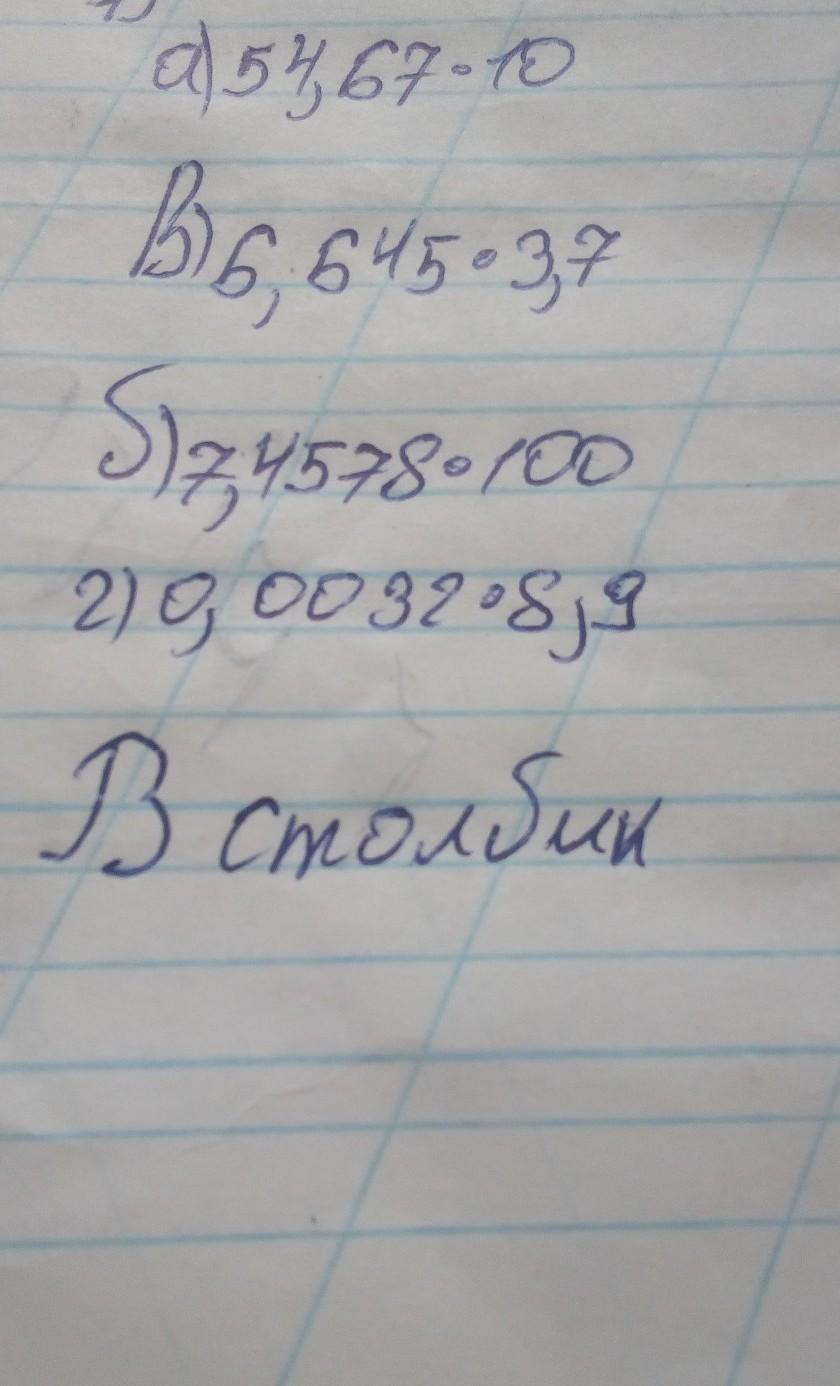 а) 54,67·10
В) 6,645·3,7
б) 7,4578·100
г) 0,0032·8,9
В столбик